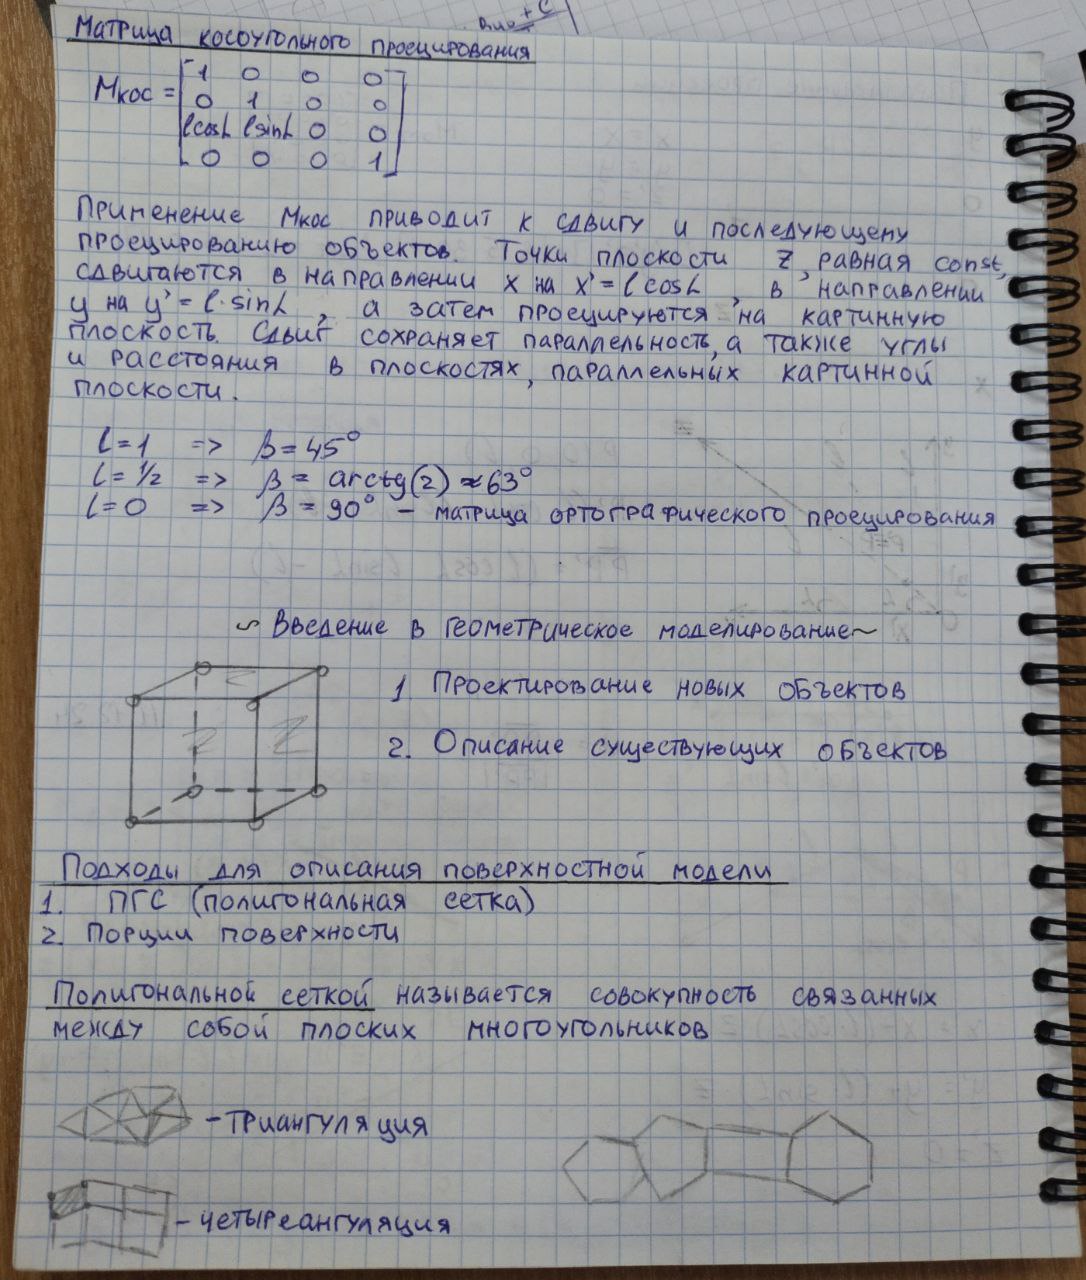 Матрица косоугольного проецирования
Мкос = [1 0 0 0
0 1 0 0
ℓcosL ℓsinL 0 0
0 0 0 1]
Применение Мкос приводит к сдвигу и последующему
проецированию объектов. Точки плоскости Z, равная const,
сдвигаются в направлении x на x' = ℓcosL, в направлении
y на y' = ℓ·sinL, а затем проецируются на картинную
плоскость. Сдвиг сохраняет параллельность, а также углы
и расстояния в плоскостях, параллельных картинной
плоскости.
ℓ=1 => β = 45°
ℓ= 1/2 => β = arctg(2) ≈ 63°
ℓ=0 => β = 90° – матрица ортографического проецирования
~ Введение в геометрическое моделирование ~
1 Проектирование новых объектов
2. Описание существующих объектов
Подходы для описания поверхностной модели
1. ПГС (полигональная сетка)
2. Порции поверхности
Полигональной сеткой называется совокупность связанных
между собой плоских многоугольников
– триангуляция
– четыреангуляция